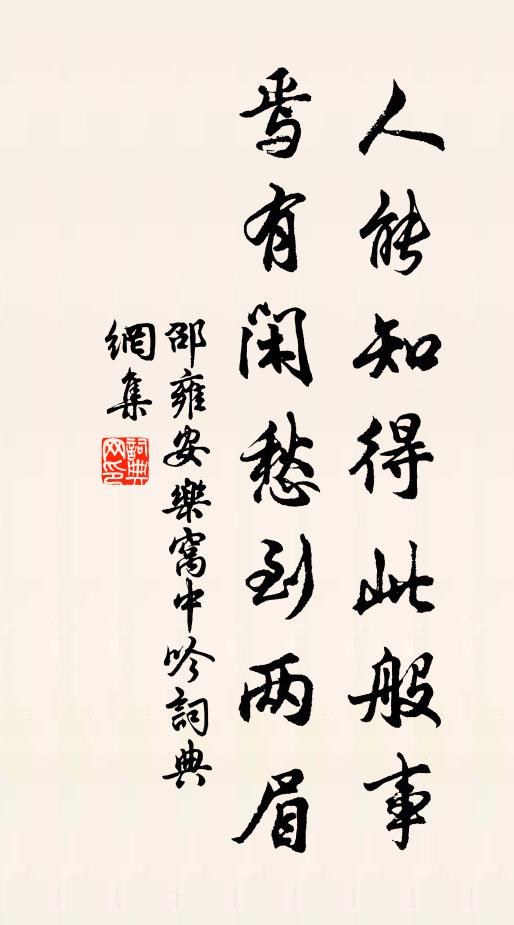 人能知得此般事
焉有闲愁到两眉
邵雍安樂窩中吟詞典
網集
詞典網印